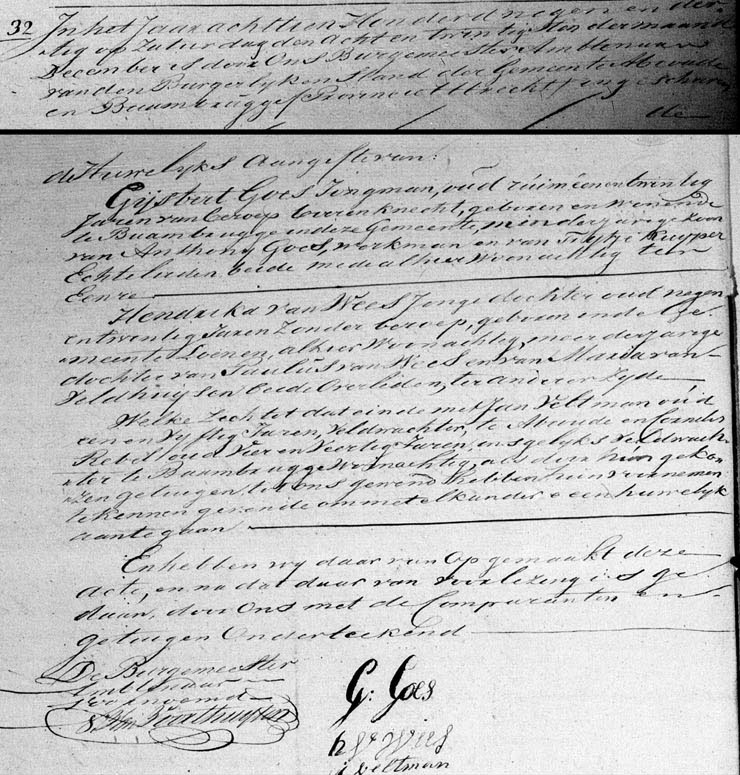 32
In het Jaar achttien Honderd negen en der-
tig op Zaturdag den acht en twintigsten der maand
December is door Ons Burgemeester Ambtenaar
van den Burgerlyken Stand der Gemeente Abcoude
en Baambrugge Provincie Utrecht ingeschreven
de
de Huwelyks Aangifte van:
Gijsbert Goes Jongman, oud ruim een en twintig
Jaren van beroep boerenknecht, geboren en wonende
te Baambrugge in deze Gemeente, minderjarige zoon
van Anthony Goes, werkman en van Kuyper
Echtelieden beide mede alhier woonachtig ter
Eenre
Hendrika van Wees Jonge dochter oud negen
en twintig Jaren Zonder beroep, geboren in de Ge-
meente Loenen, alhier woonachtig, meerderjarige
dochter van Paulus van Wees en van Maria van
Veldhuysen beide Overleden, ter andere zyde
Welke zech tot dat einde met Jan Veltman oud
een en Vyftig Jaren, veldwachter, te Abcoude en Cornelis
Rebel oud Vier en Veertig Jaren, insgelyks veldwach-
ter te Baambrugge woonachtig, als door hun geko-
zen getuigen, tot ons gewend hebben hun voornemen
te kennen gevende om met elkander een huwelyk
aan te gaan
En hebben wy daar van Op gemaakt deze
acte, en na dat daar van voorlezing is ge-
daan, door Ons met de Comparanten en
getuigen Onderteekend
De Burgemeester
Ambtenaar
voornoemd
G: Goes
h v Wees
j veltman